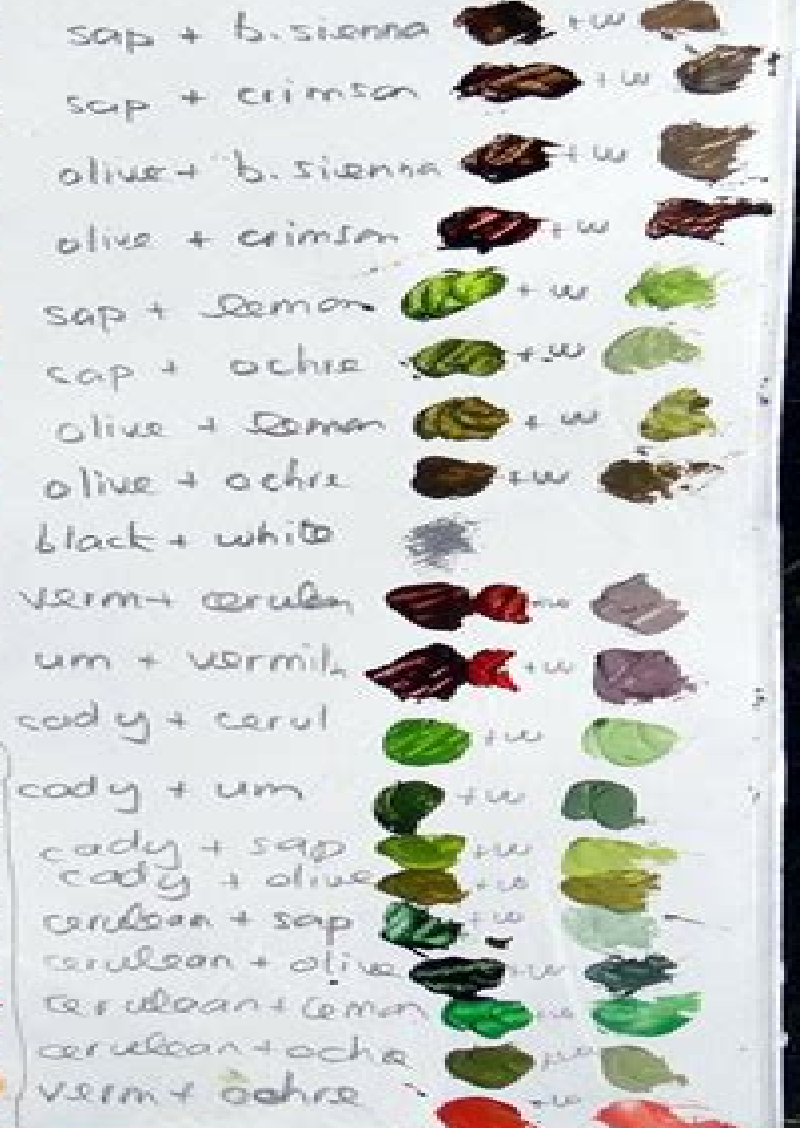 sap + b.sienna +w
sap + crimson +w
olive + b.sienna +w
olive + crimson +w
sap + lemon +w
sap + ochre +w
olive + lemon +w
olive + ochre +w
black + white
verm + cerulen
um + vermil. +w
cad y + cerul +w
cad y + um +w
cad y + sap +w
cad y + olive +w
cerulean + sap +w
cerulean + olive +w
cerulean + lemon +w
cerulean + ochre +w
verm + ochre +w